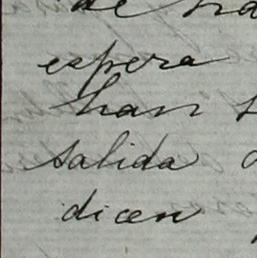 de
espera
han
salida
dicen